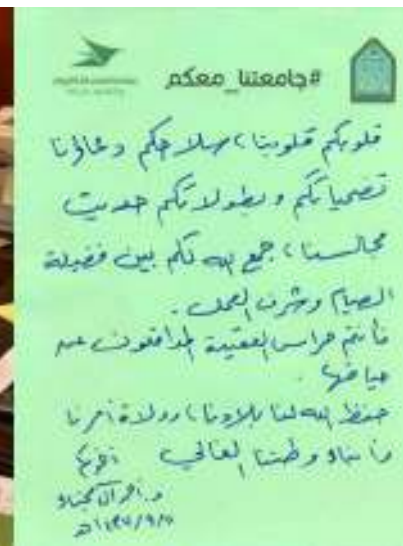 #جامعتنا_معكم
قلوبكم قلوبنا، سلاحكم دعاؤنا
تضحياتكم وبطولاتكم حديث
مجالسنا، جمع الله لكم بين فضيلة
الصيام وشرف العمل.
فأنتم حراس العقيدة المدافعون عن
حياضها.
حفظ الله لنا بلادنا، وولاة أمرنا
وأبناء وطننا الغالي